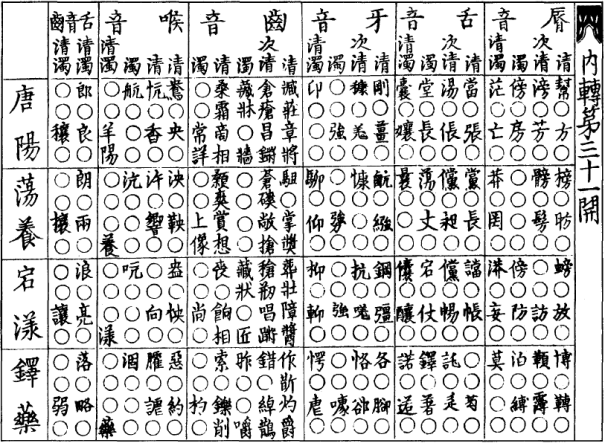 内轉第三十一開
脣音
清 幫○方○ 榜○昉○ 螃○放○ 博○轉○
次清 滂○芳○ 髈○髣○ ○○訪○ ○○
濁 傍○房○ ○○○○ 傍○防○ 泊○縛○
清濁 茫○亡○ 莽○罔○ 漭○妄○ 莫○○○
舌音
清 當○張○ 黨○長○ 譡○帳○ ○○芍○
次清 湯○倀○ 儻○昶○ 儻○暢○ 託○辵○
濁 堂○長○ 蕩○丈○ 宕○仗○ 鐸○著○
清濁 囊○孃○ 曩○○○ 儾○釀○ 諾○逽○
牙音
清 剛○薑○ ○繈○ 鋼○彊○ 各○腳○
次清 穅○羌○ 慷○○○ 抗○唴○ 恪○卻○
濁 ○○強○ ○○勥○ ○○強○ ○○噱○
清濁 卬○○○ 聊○仰○ 枊○䡾○ 愕○虐○
齒音
清 臧莊章將 駔○掌奬 葬壯障醬 作斮灼爵
次清 倉瘡昌鏘 蒼磢敞搶 刱唱蹡 錯○綽鵲
濁 藏牀○牆 ○○○○ 藏狀○匠 昨○○嚼
清 桑霜商相 顙爽賞想 喪○餉相 索○鑠削
濁 ○○常詳 ○○上像 ○○尚○ ○○杓○
喉音
清 鴦○央○ 泱○鞅○ 盎○怏○ 惡○約○
清 炕○香○ 汻○響○ ○○向○ 臛○謔○
濁 航○○○ 沆○○○ 吭○○○ 涸○○○
清濁 ○○羊陽 ○○○養 ○○○漾 ○○○藥
舌音齒
清濁 郎○良○ 朗○兩○ 浪○亮○ 落○略○
清濁 ○○穰○ ○○壤○ ○○讓○ ○○弱○
唐陽
蕩養
宕漾
鐸藥